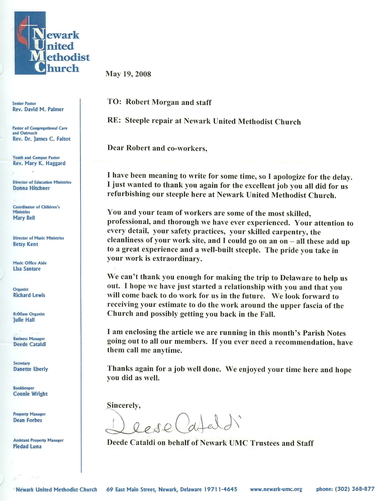 Newark
United
Methodist
Church
May 19, 2008
Senior Pastor
Rev. David M. Palmer
Pastor of Congregational Care
and Outreach
Rev. Dr. James C. Faltot
Youth and Campus Pastor
Rev. Mary K. Haggard
Director of Education Ministries
Donna Hitchner
Coordinator of Children's
Ministries
Mary Bell
Director of Music Ministries
Betsy Kent
Music Office Aide
Lisa Santare
Organist
Richard Lewis
8:00am Organist
Julie Hall
Business Manager
Deede Cataldi
Secretary
Danette Eberly
Bookkeeper
Connie Wright
Property Manager
Dean Forbes
Assistant Property Manager
Piedad Luna
TO: Robert Morgan and staff
RE: Steeple repair at Newark United Methodist Church
Dear Robert and co-workers,
I have been meaning to write for some time, so I apologize for the delay.
I just wanted to thank you again for the excellent job you all did for us
refurbishing our steeple here at Newark United Methodist Church.
You and your team of workers are some of the most skilled,
professional, and thorough we have ever experienced. Your attention to
every detail, your safety practices, your skilled carpentry, the
cleanliness of your work site, and I could go on an on – all these add up
to a great experience and a well-built steeple. The pride you take in
your work is extraordinary.
We can't thank you enough for making the trip to Delaware to help us
out. I hope we have just started a relationship with you and that you
will come back to do work for us in the future. We look forward to
receiving your estimate to do the work around the upper fascia of the
Church and possibly getting you back in the Fall.
I am enclosing the article we are running in this month's Parish Notes
going out to all our members. If you ever need a recommendation, have
them call me anytime.
Thanks again for a job well done. We enjoyed your time here and hope
you did as well.
Sincerely,
Deede Cataldi
Deede Cataldi on behalf of Newark UMC Trustees and Staff
Newark United Methodist Church 69 East Main Street, Newark, Delaware 19711-4645 www.newark-umc.org phone: (302) 368-877